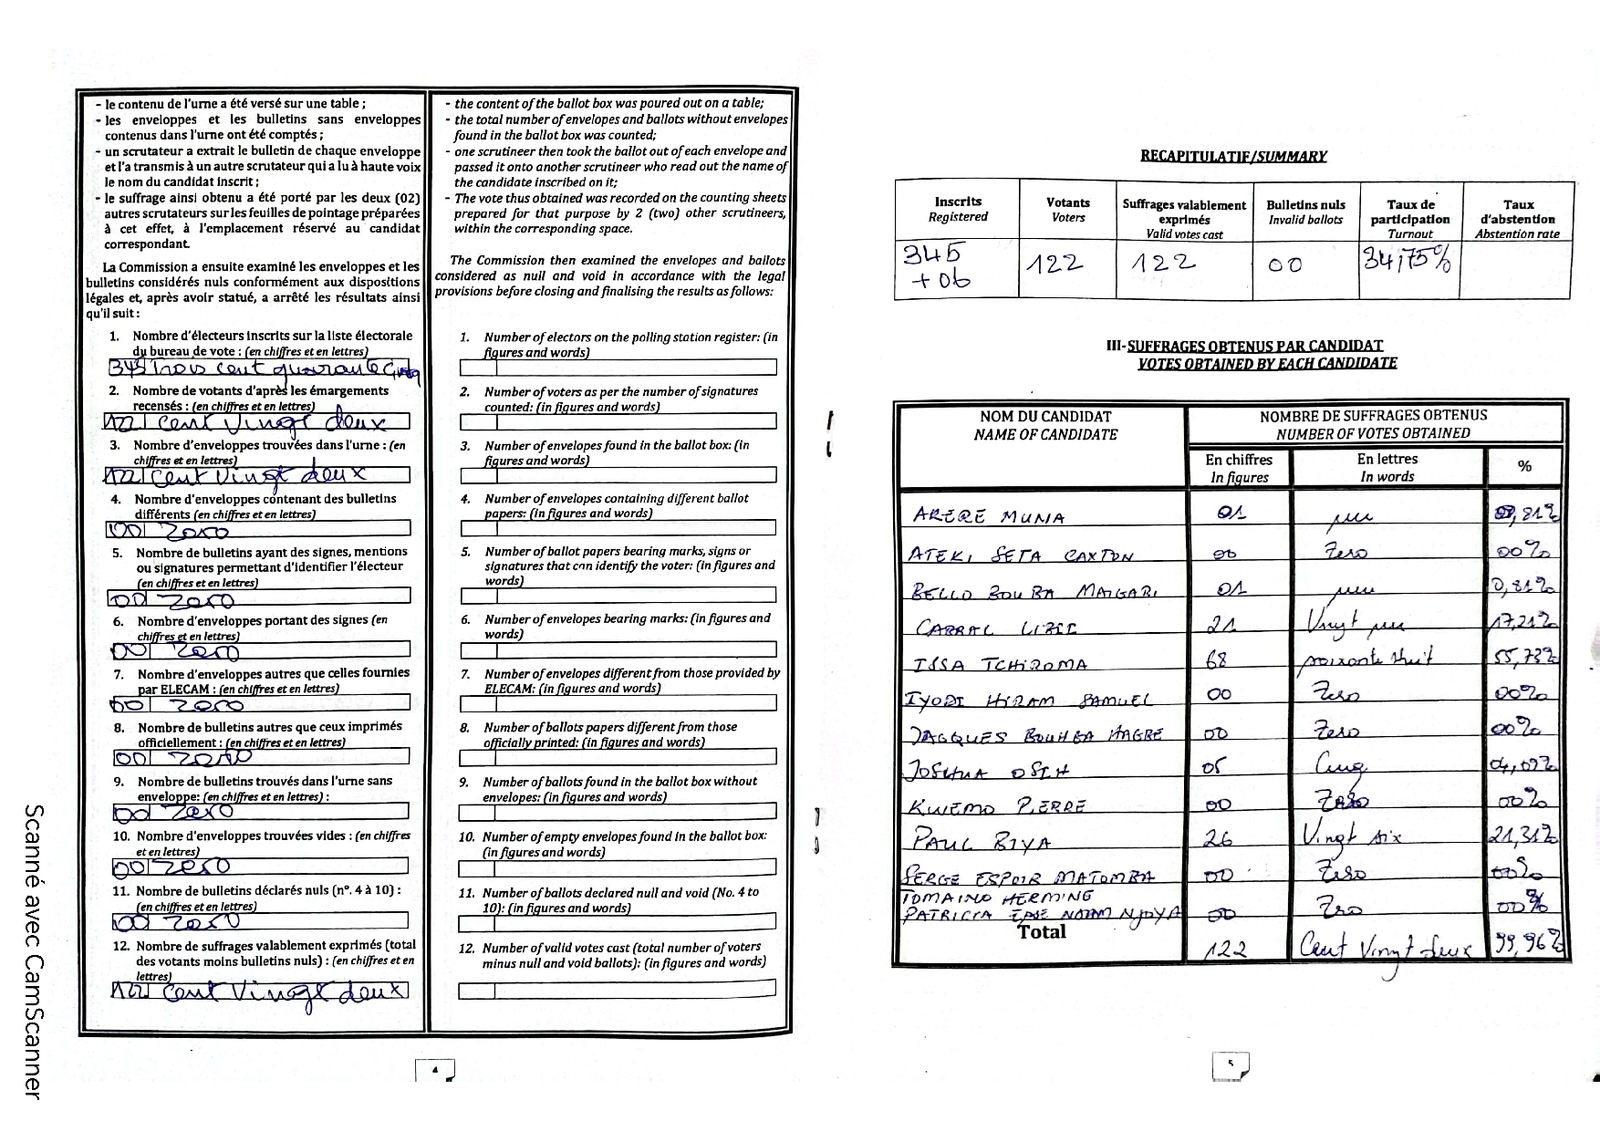 - le contenu de l'urne a été versé sur une table ;
- les enveloppes et les bulletins sans enveloppes
contenus dans l'urne ont été comptés ;
- un scrutateur a extrait le bulletin de chaque enveloppe
et l'a transmis à un autre scrutateur qui a lu à haute voix
le nom du candidat inscrit ;
- le suffrage ainsi obtenu a été porté par les deux (02)
autres scrutateurs sur les feuilles de pointage préparées
à cet effet, à l'emplacement réservé au candidat
correspondant.
La Commission a ensuite examiné les enveloppes et les
bulletins considérés nuls conformément aux dispositions
légales et, après avoir statué, a arrêté les résultats ainsi
qu'il suit :
1. Nombre d'électeurs inscrits sur la liste électorale
du bureau de vote : (en chiffres et en lettres)
345 Trois cent quarante Cinq
2. Nombre de votants d'après les émargements
recensés : (en chiffres et en lettres)
122 Cent Vingt deux
3. Nombre d'enveloppes trouvées dans l'urne : (en
chiffres et en lettres)
122 Cent Vingt deux
4. Nombre d'enveloppes contenant des bulletins
différents (en chiffres et en lettres)
00 Zero
5. Nombre de bulletins ayant des signes, mentions
ou signatures permettant d'identifier l'électeur
(en chiffres et en lettres)
00 Zero
6. Nombre d'enveloppes portant des signes (en
chiffres et en lettres)
00 Zero
7. Nombre d'enveloppes autres que celles fournies
par ELECAM : (en chiffres et en lettres)
00 Zero
8. Nombre de bulletins autres que ceux imprimés
officiellement : (en chiffres et en lettres)
00 Zero
9. Nombre de bulletins trouvés dans l'urne sans
enveloppe: (en chiffres et en lettres) :
00 Zero
10. Nombre d'enveloppes trouvées vides : (en chiffres
et en lettres)
00 Zero
11. Nombre de bulletins déclarés nuls (n°. 4 à 10) :
(en chiffres et en lettres)
00 Zero
12. Nombre de suffrages valablement exprimés (total
des votants moins bulletins nuls) : (en chiffres et en
lettres)
122 Cent Vingt deux
- the content of the ballot box was poured out on a table;
- the total number of envelopes and ballots without envelopes
found in the ballot box was counted;
- one scrutineer then took the ballot out of each envelope and
passed it onto another scrutineer who read out the name of
the candidate inscribed on it;
- The vote thus obtained was recorded on the counting sheets
prepared for that purpose by 2 (two) other scrutineers,
within the corresponding space.
The Commission then examined the envelopes and ballots
considered as null and void in accordance with the legal
provisions before closing and finalising the results as follows:
1. Number of electors on the polling station register: (in
figures and words)
2. Number of voters as per the number of signatures
counted: (in figures and words)
3. Number of envelopes found in the ballot box: (in
figures and words)
4. Number of envelopes containing different ballot
papers: (in figures and words)
5. Number of ballot papers bearing marks, signs or
signatures that can identify the voter: (in figures and
words)
6. Number of envelopes bearing marks: (in figures and
words)
7. Number of envelopes different from those provided by
ELECAM: (in figures and words)
8. Number of ballots papers different from those
officially printed: (in figures and words)
9. Number of ballots found in the ballot box without
envelopes: (in figures and words)
10. Number of empty envelopes found in the ballot box:
(in figures and words)
11. Number of ballots declared null and void (No. 4 to
10): (in figures and words)
12. Number of valid votes cast (total number of voters
minus null and void ballots): (in figures and words)
4
RECAPITULATIF/SUMMARY
Inscrits Registered Votants Voters Suffrages valablement exprimés Valid votes cast Bulletins nuls Invalid ballots Taux de participation Turnout Taux d'abstention Abstention rate
345 +06 122 122 00 34,75%
III-SUFFRAGES OBTENUS PAR CANDIDAT
VOTES OBTAINED BY EACH CANDIDATE
NOM DU CANDIDAT NOMBRE DE SUFFRAGES OBTENUS
NAME OF CANDIDATE NUMBER OF VOTES OBTAINED
En chiffres En lettres %
In figures In words
AKERE MUNA 01 un 0,81%
ATEKI SETA CAXTON 00 Zero 00%
BELLO BOUBA MAIGARI 01 un 0,81%
CABRAL LIBII 21 Vingt un 17,21%
ISSA TCHIROMA 68 soixante huit 55,73%
IYODI HIRAM SAMUEL 00 Zero 00%
JACQUES BOUHGA HAGBE 00 Zero 00%
JOSHUA OSIH 05 Cinq 04,09%
KWEMO PIERRE 00 Zero 00%
PAUL BIYA 26 Vingt six 21,31%
SERGE ESPOIR MATOMBA 00 Zero 00%
TOMAINO HERMINE
PATRICIA NDAM NJOYA 00 Zero 00%
Total 122 Cent Vingt deux 99,96%
5
Scanné avec CamScanner